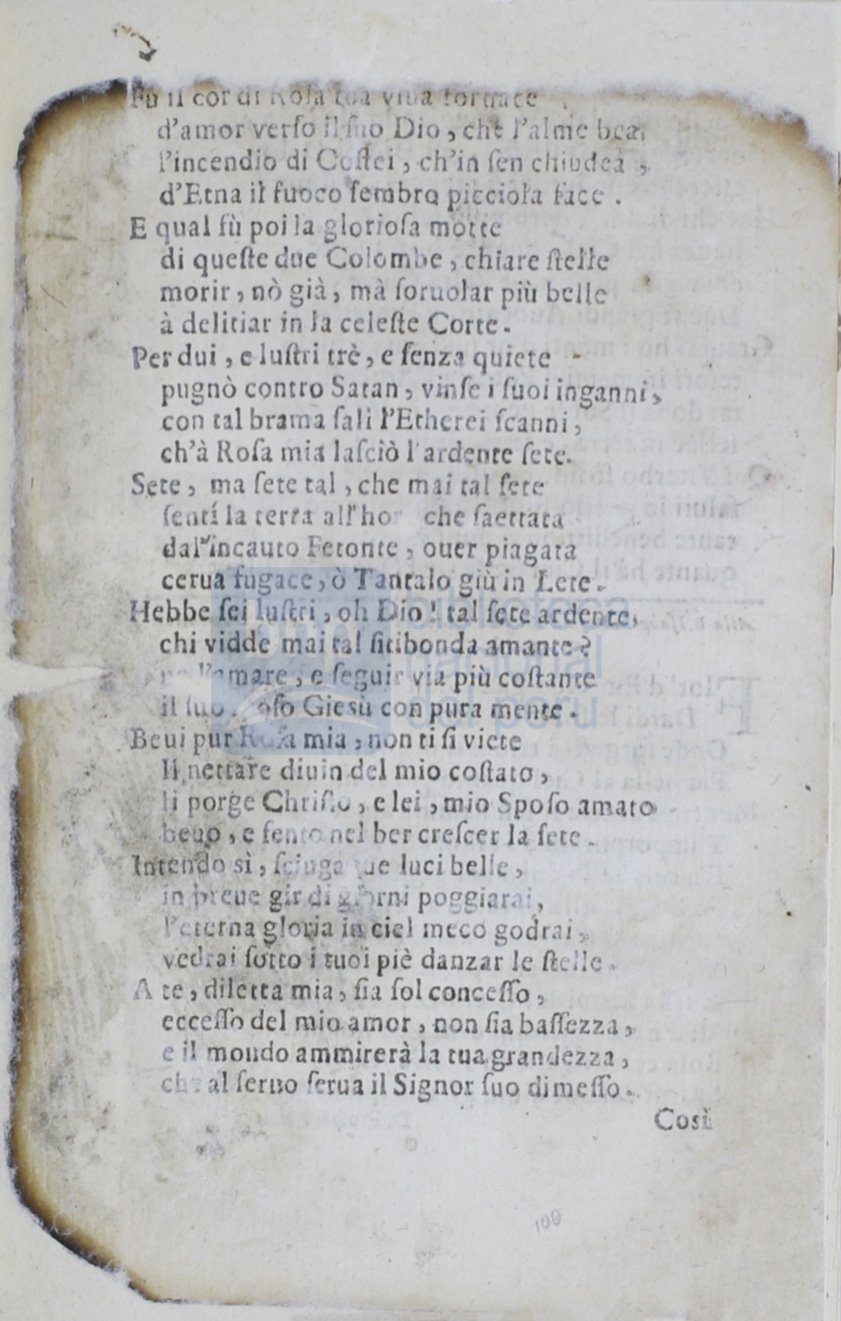 Fù il cor di Rosa sua viua fornace
d'amor verso il suo Dio, che l'alme bea,
l'incendio di Costei, ch'in sen chiudea,
d'Etna il fuoco sembro picciola face.
E qual fù poi la gloriosa morte
di queste due Colombe, chiare stelle
morir, nò già, mà soruolar più belle
à delitiar in la celeste Corte.
Per dui, e lustri trè, e senza quiete
pugnò contro Satan, vinse i suoi inganni,
con tal brama sali l'Etherei scanni,
ch'à Rosa mia lasciò l'ardente sete.
Sete, ma sete tal, che mai tal sete
sentí la terra all'hor che saettata
dal'incauto Fetonte, ouer piagata
cerua fugace, ò Tantalo giù in Lete.
Hebbe sei lustri, oh Dio! tal sete ardente,
chi vidde mai tal sitibonda amante?
l'amare, e seguir via più costante
il suo Giesù con pura mente.
Beui pur Rosa mia, non ti si viete
Il nettare diuin del mio costato,
li porge Christo, e lei, mio Sposo amato
beuo, e sento nel ber crescer la sete.
Intendo sì, sciuga tue luci belle,
in breue gir di giorni poggiarai,
l'eterna gloria in ciel meco godrai,
vedrai sotto i tuoi piè danzar le stelle.
A te, diletta mia, sia sol concesso,
eccesso del mio amor, non sia bassezza,
e il mondo ammirerà la tua grandezza,
che al seruo serua il Signor suo dimesso.
Così
100
biblioteca
nacional
del perú